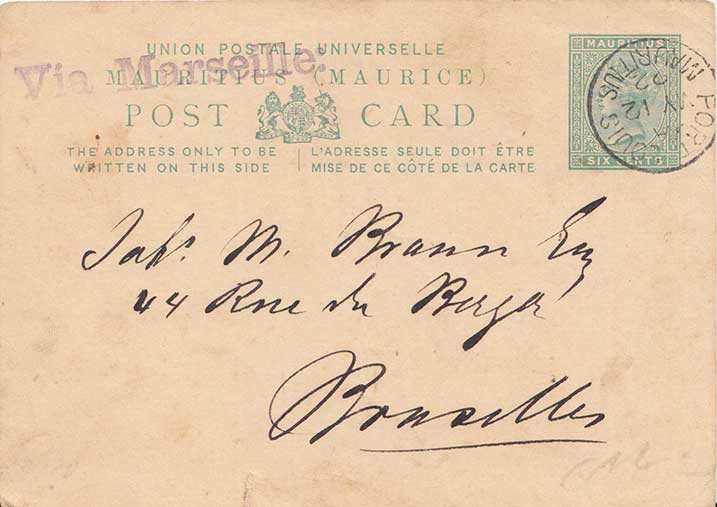 UNION POSTALE UNIVERSELLE
Via Marseille.
MAURITIUS (MAURICE)
POST CARD
THE ADDRESS ONLY TO BE
WRITTEN ON THIS SIDE
L'ADRESSE SEULE DOIT ÊTRE
MISE DE CE CÔTÉ DE LA CARTE
MAURITIUS
SIX CENTS
PORT LOUIS
MAURITIUS
M. Braun Esq
44 Rue du Berger
Bruxelles